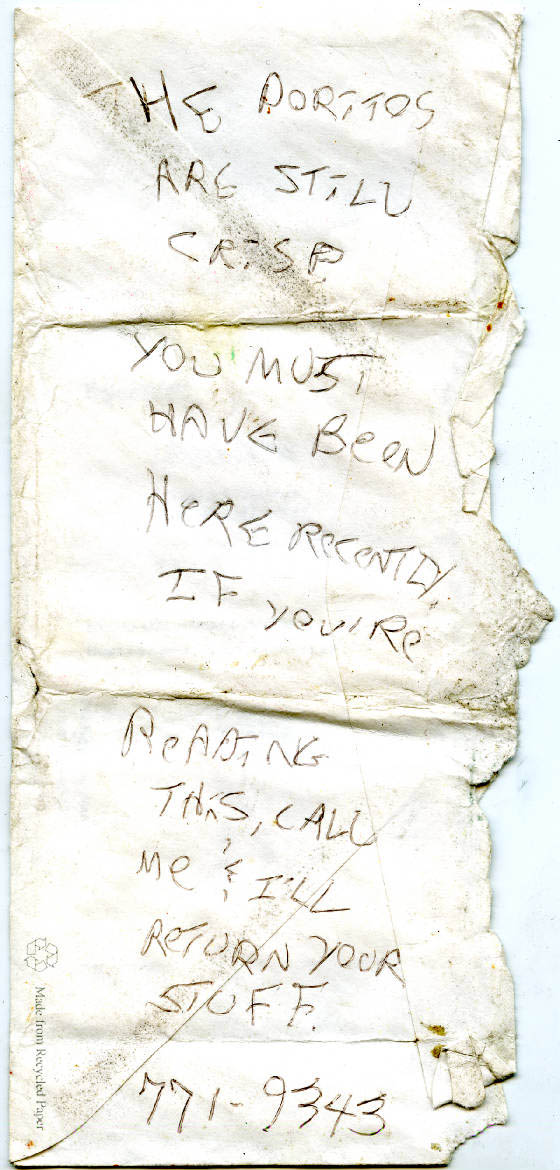 THE DORITOS
ARE STILL
CRISP
YOU MUST
HAVE BEEN
HERE RECENTLY.
IF YOU'RE
READING
THIS, CALL
ME & I'LL
RETURN YOUR
STUFF.
771-9343
Made from Recycled Paper